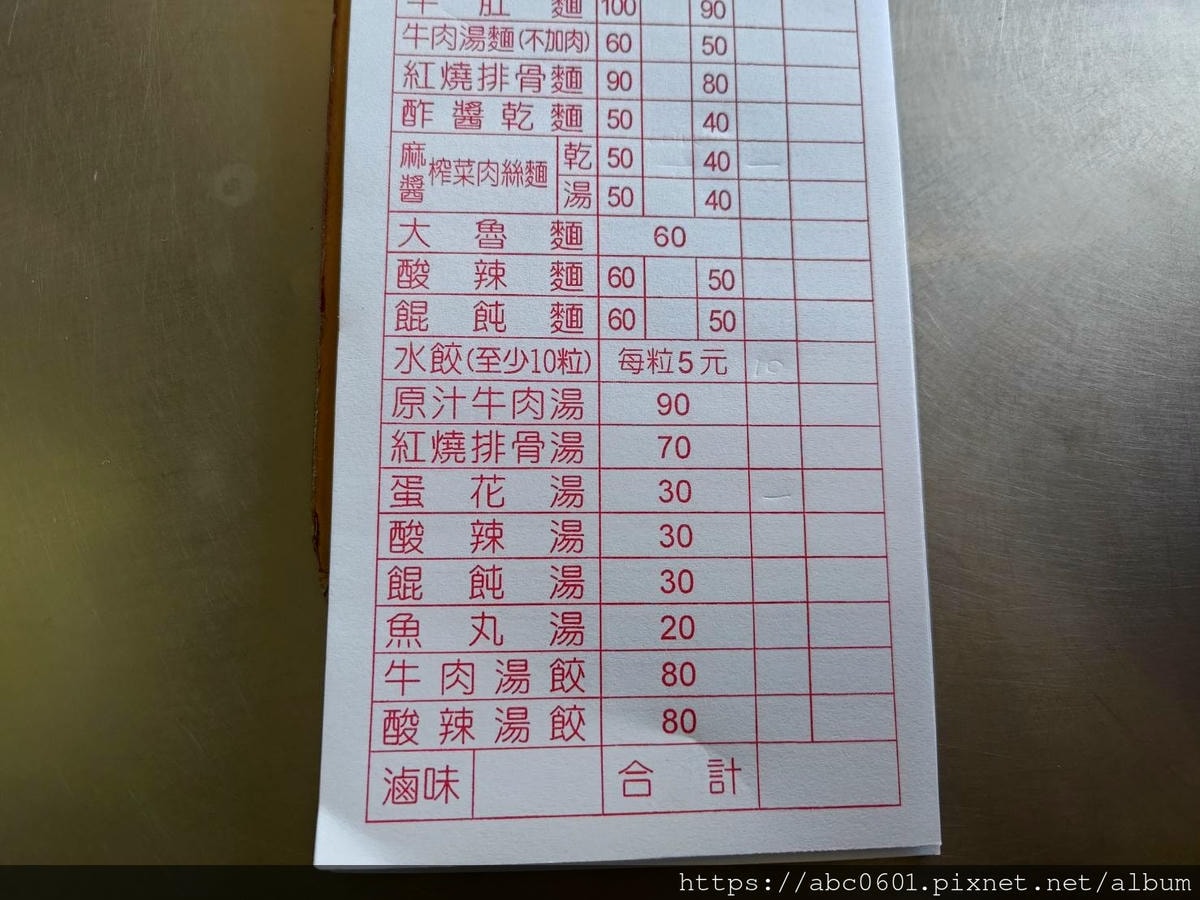 牛肚麵 100 90
牛肉湯麵(不加肉) 60 50
紅燒排骨麵 90 80
酢醬乾麵 50 40
麻醬榨菜肉絲麵 乾 50 40
湯 50 40
大魯麵 60
酸辣麵 60 50
餛飩麵 60 50
水餃(至少10粒) 每粒5元
原汁牛肉湯 90
紅燒排骨湯 70
蛋花湯 30
酸辣湯 30
餛飩湯 30
魚丸湯 20
牛肉湯餃 80
酸辣湯餃 80
滷味 合計
https://abc0601.pixnet.net/album